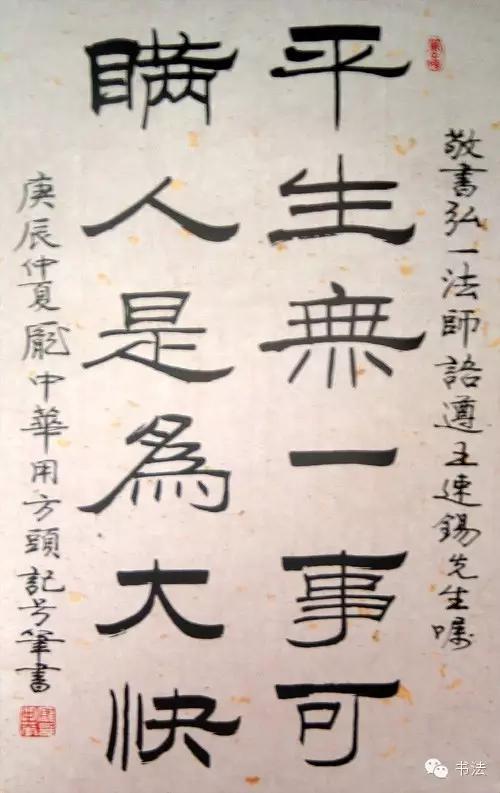 敬書弘一法師語遵王速錫先生囑
平生無一事可
瞞人是爲大快
庚辰仲夏龐中華用方頭記号筆書
书法